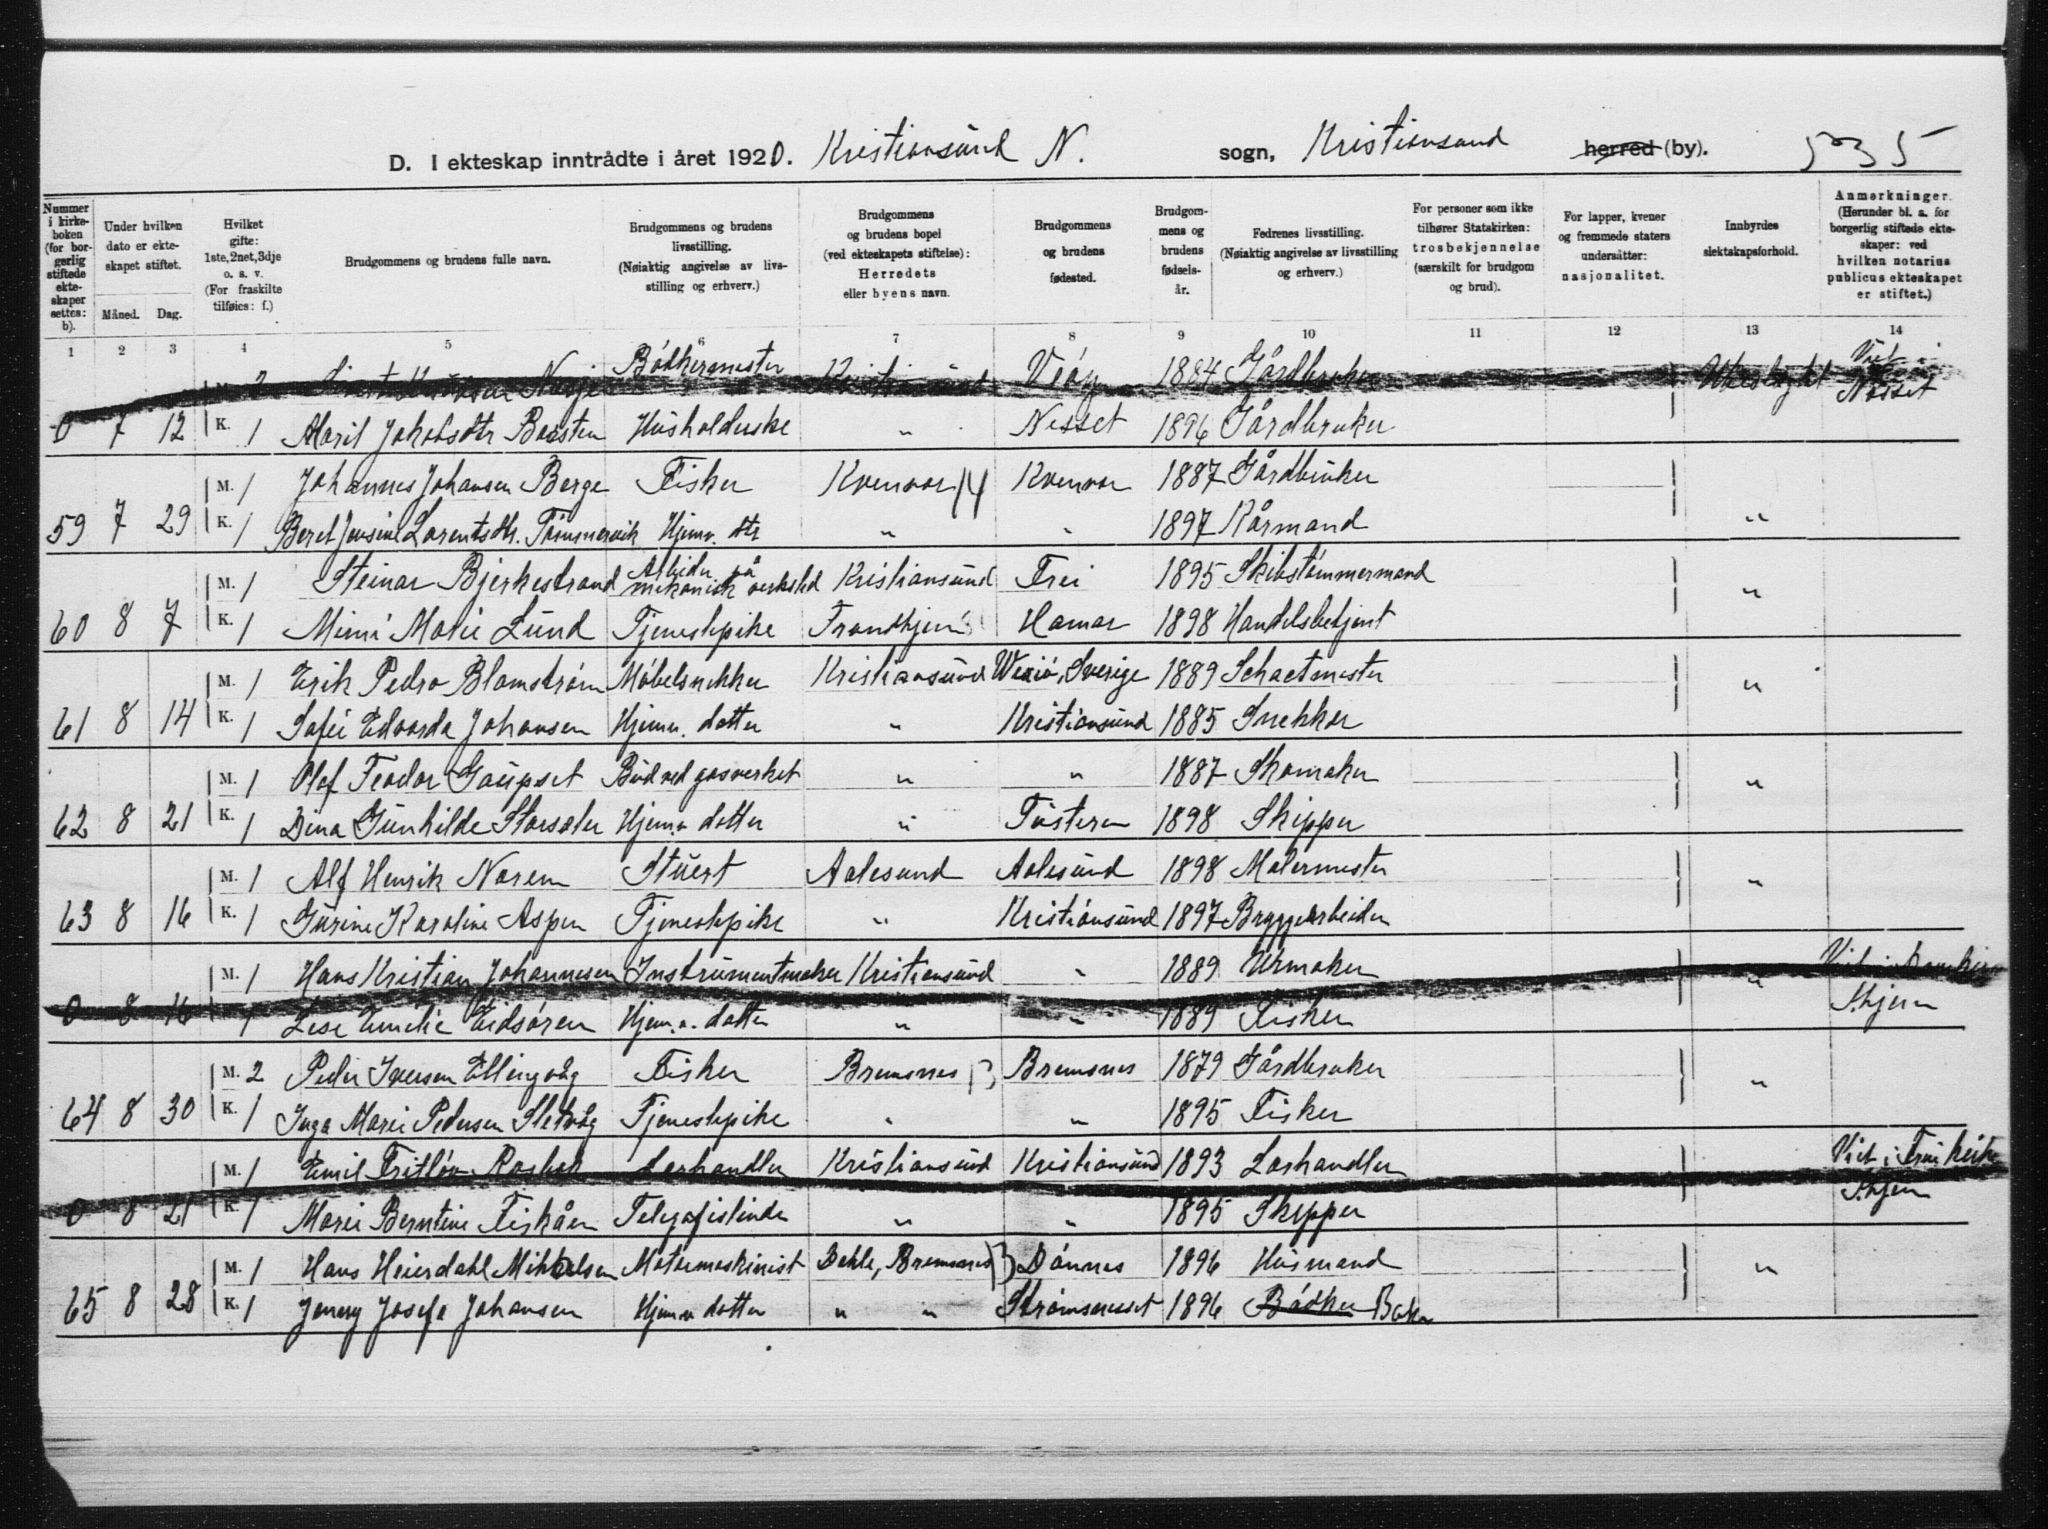 D. I ekteskap inntrådte i året 1920. Kristiansund N. sogn, Kristiansund herred (by). 535
Nummer i kirkeboken (for borgerlig stiftede ekteskaper settes: b).
Under hvilken dato er ekteskapet stiftet. Måned. Dag.
Hvilket gifte: 1ste, 2net, 3dje o. s. v. (For fraskilte tilføies: f.)
Brudgommens og brudens fulle navn.
Brudgommens og brudens livsstilling. (Nøiaktig angivelse av livsstilling og erhverv.)
Brudgommens og brudens bopel (ved ekteskapets stiftelse): Herredets eller byens navn.
Brudgommens og brudens fødested.
Brudgommens og brudens fødselsår.
Fedrenes livsstilling. (Nøiaktig angivelse av livsstilling og erhverv.)
For personer som ikke tilhører Statskirken: trosbekjennelse (særskilt for brudgom og brud).
For lapper, kvener og fremmede staters undersåtter: nasjonalitet.
Innbyrdes slektskapsforhold.
Anmerkninger. (Herunder bl. a. for borgerlig stiftede ekteskaper: ved hvilken notarius publicus ekteskapet er stiftet.)
1 2 3 4 5 6 7 8 9 10 11 12 13 14
M. 2 Bødkermester Kristiansund Veøy 1884 Gårdbruker Ubeslegtet Viet i Nesset
0 7 12 K. 1 Marit Jakobsdtr Husholderske " Nesset 1896 Gårdbruker
M. 1 Johannes Johansen Berge Fisker Kvenvær 14 Kvenvær 1887 Gårdbruker
59 7 29 K. 1 Beret Jensine Lorentsdtr. Tømmervik Hjemv. dtr " " 1897 Kårmand "
M. 1 Steinar Bjerkestrand Arbeider på mekanisk verksted Kristiansund Frei 1895 Skibstømmermand
60 8 7 K. 1 Mimi Marie Lund Tjenestepike Trondhjem Hamar 1898 Handelsbetjent "
M. 1 Erik Pedro Blomstrøm Møbelsnekker Kristiansund Wexiö, Sverige 1889 Schactmester
61 8 14 K. 1 Sofie Edvarda Johansen Hjemv. datter " Kristiansund 1885 Snekker "
M. 1 Olof Teodor Gaupset Bud ved gasverket " " 1887 Skomaker
62 8 21 K. 1 Dina Gunhilde Storsæter Hjemv datter " Tustern 1898 Skipper "
M. 1 Alf Henrik Norem Stuert Aalesund Aalesund 1898 Malermester
63 8 16 K. 1 Gurine Karoline Aspen Tjenestepike " Kristiansund 1897 Bryggearbeider "
M. 1 Hans Kristian Johannesen Instrumentmaker Kristiansund " 1889 Urmaker Viet i
0 8 16 1 Lise Emilie Eidsøren Hjemv. datter " " 1889 Fisker " Thjem
M. 2 Peder Iversen Ellingvåg Fisker Bremsnes 13 Bremsnes 1879 Gårdbruker
64 8 30 K. 1 Inga Marie Pedersen Sletvåg Tjenestepike " " 1895 Fisker "
M. 1 Emil Fritlöv Lærhandler Kristiansund Kristiansund 1893 Lærhandler Viet i
0 8 21 K. 1 Marie Berntine Fiskåen Telegrafistinde " " 1895 Skipper Thjem
M. 1 Hans Heierdahl Mikkelsen Motormaskinist Dahle, Bremsnes 13 Dönnes 1896 Husmand
65 8 28 K. 1 Jenny Josefa Johansen Hjemv datter " " Strømsnesset 1896 Bödker Baker "